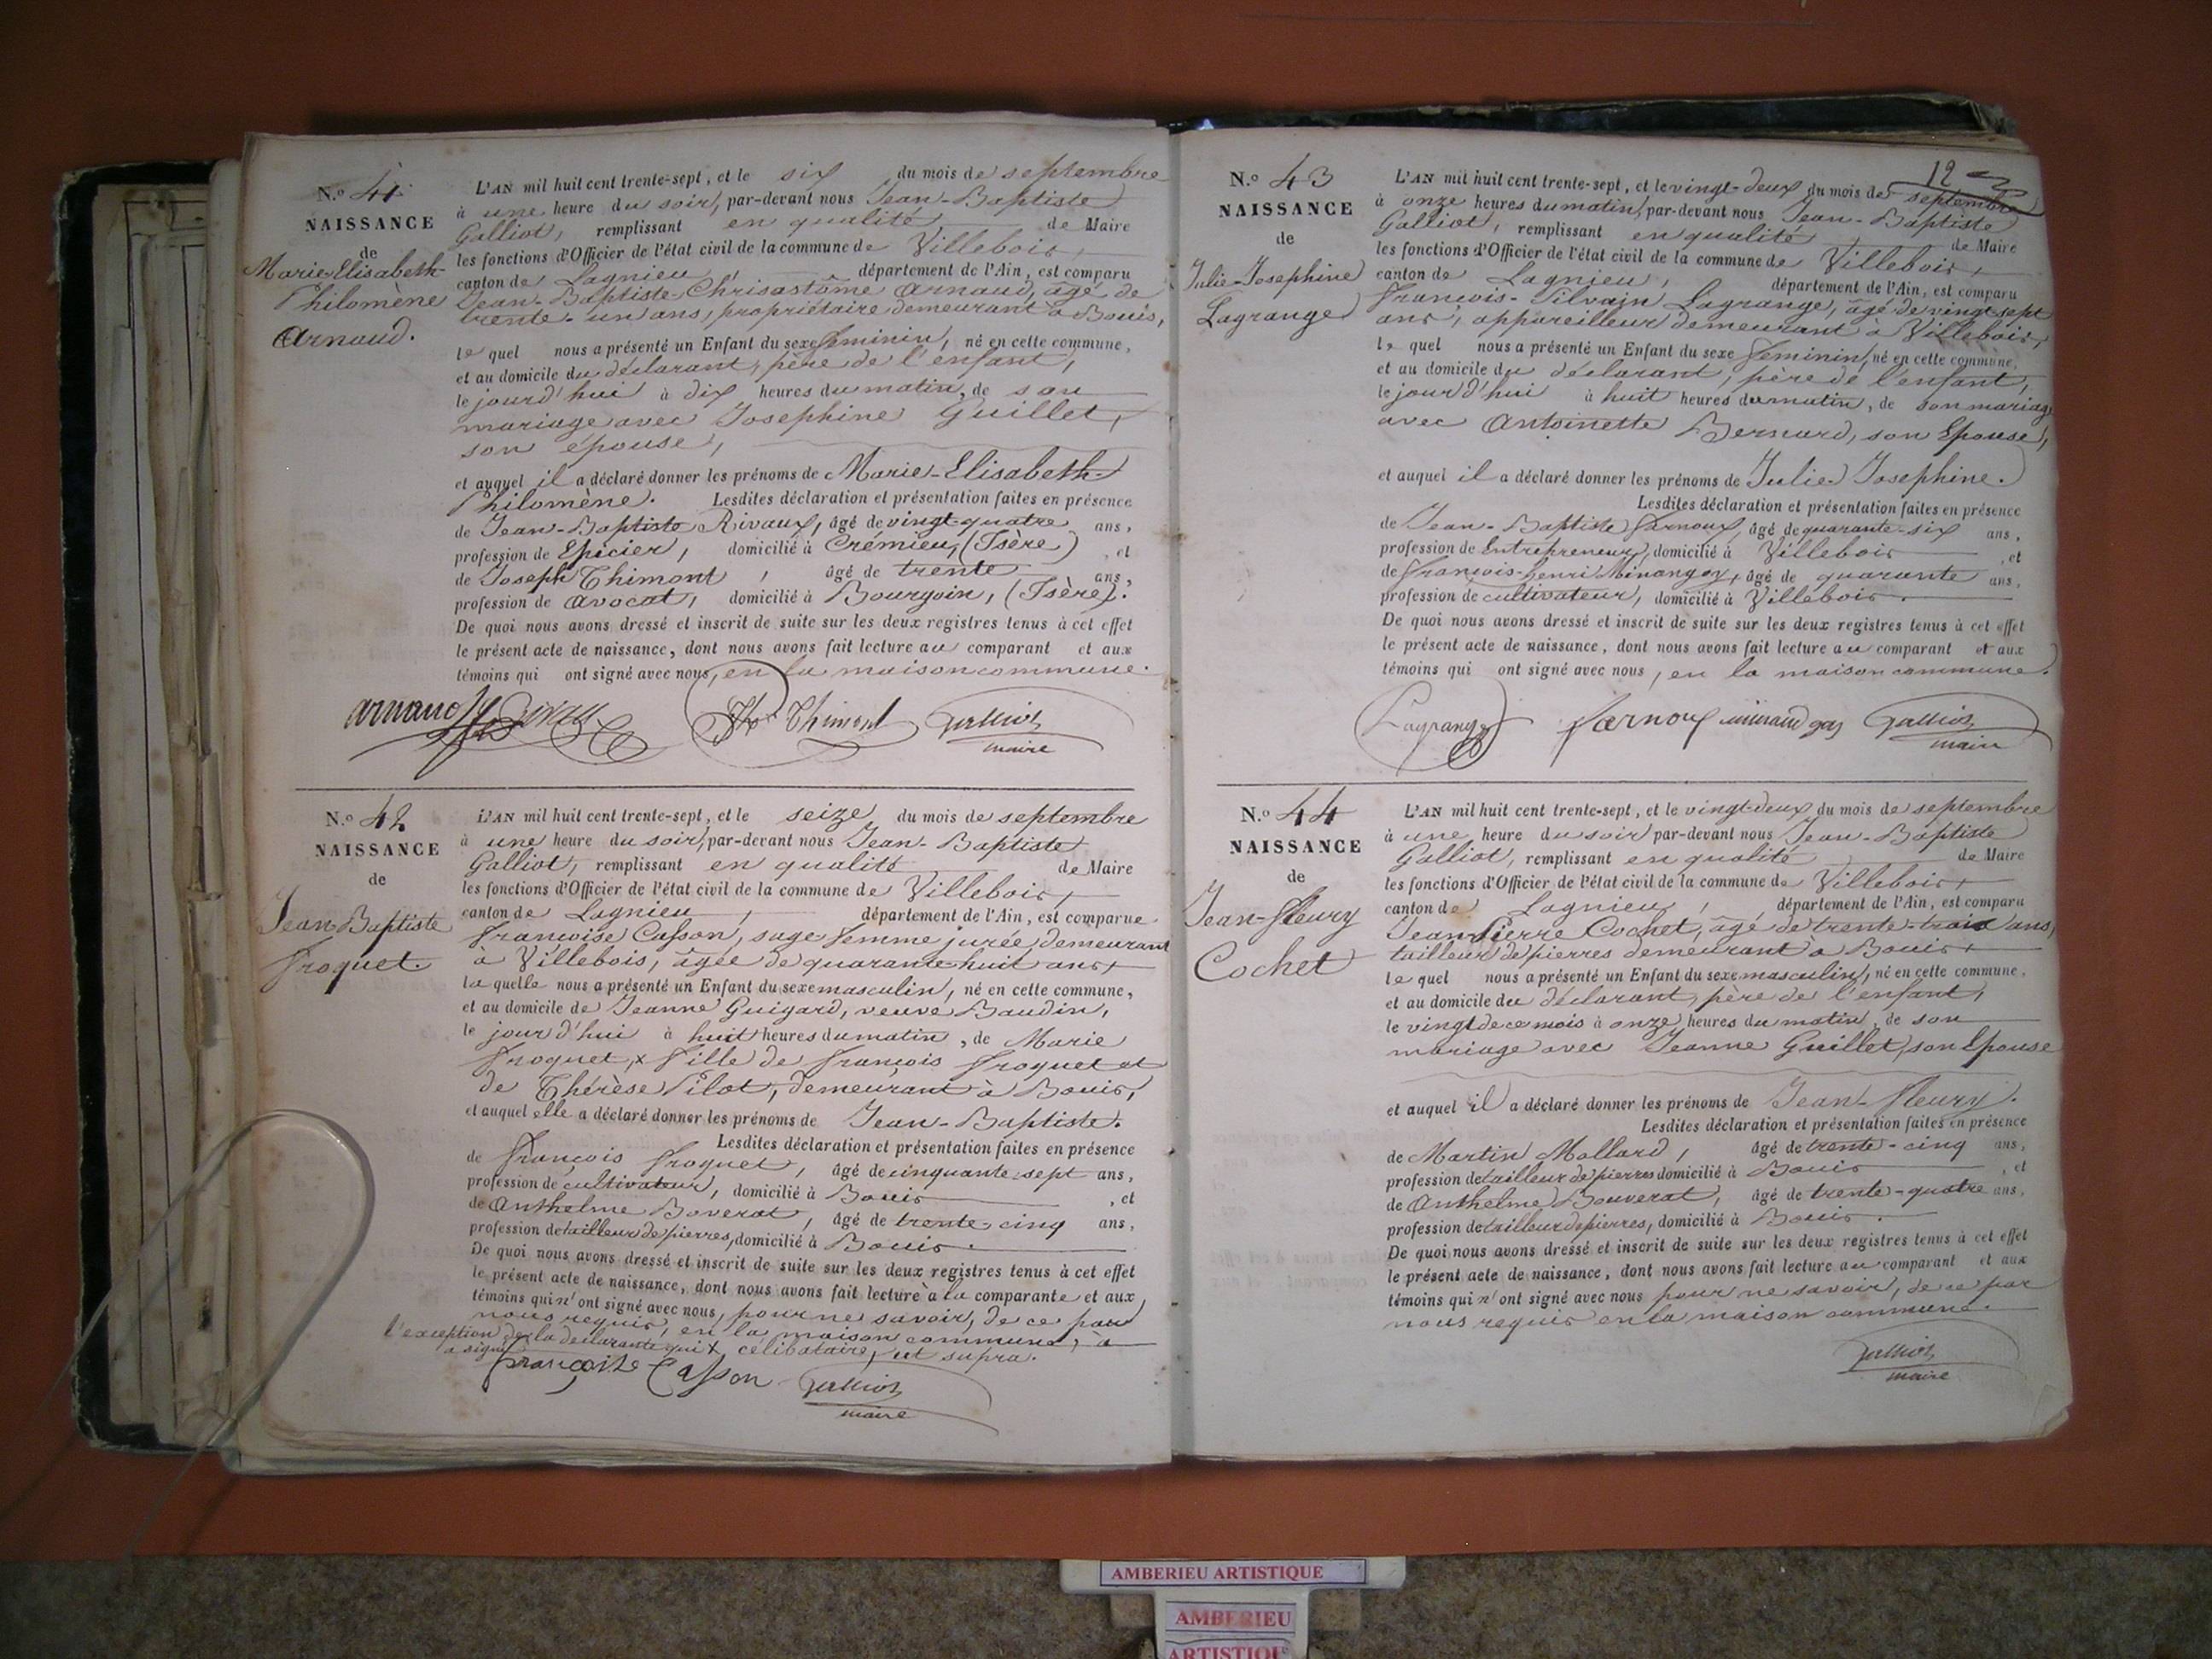 N.o 41.
NAISSANCE
de
Marie Elisabeth
Philomène
Arnaud.
L'AN mil huit cent trente-sept, et le six du mois de septembre
à une heure du soir, par-devant nous Jean-Baptiste
Galliot, remplissant en qualité de Maire
les fonctions d'Officier de l'état civil de la commune de Villebois,
canton de Lagnieu, département de l'Ain, est comparu
Jean-Baptiste Chrisastôme Arnaud, âgé de
trente-un ans, propriétaire demeurant à Bouis,
le quel nous a présenté un Enfant du sexe féminin, né en cette commune,
et au domicile du déclarant, père de l'enfant,
le jourd'hui à dix heures du matin, de son
mariage avec Josephine Guillet,
son épouse,
et auquel il a déclaré donner les prénoms de Marie-Elisabeth-
Philomène. Lesdites déclaration et présentation faites en présence
de Jean-Baptiste Rivaux, âgé de vingt-quatre ans,
profession de Epicier, domicilié à Crémieu, (Isère), et
de Joseph Thimont, âgé de trente ans,
profession de avocat, domicilié à Bourgoin, (Isère).
De quoi nous avons dressé et inscrit de suite sur les deux registres tenus à cet effet
le présent acte de naissance, dont nous avons fait lecture au comparant et aux
témoins qui ont signé avec nous, en la maison commune.
arnaud Thimont Galliot
maire
N.o 42
NAISSANCE
de
Jean Baptiste
Froquet.
L'AN mil huit cent trente-sept, et le seize du mois de septembre
à une heure du soir, par-devant nous Jean-Baptiste
Galliot, remplissant en qualité de Maire
les fonctions d'Officier de l'état civil de la commune de Villebois,
canton de Lagnieu, département de l'Ain, est comparue
Francoise Casson, sage femme jurée demeurant
à Villebois, âgée de quarante-huit ans,
la quelle nous a présenté un Enfant du sexe masculin, né en cette commune,
et au domicile de Jeanne Guigard, veuve Baudin,
le jourd'hui à huit heures du matin, de Marie
Froquet, x fille de François Froquet et
de Thérèse Pilot, demeurant à Bouis,
et auquel elle a déclaré donner les prénoms de Jean-Baptiste.
Lesdites déclaration et présentation faites en présence
de François Froquet, âgé de cinquante-sept ans,
profession de cultivateur, domicilié à Bouis, et
de Anthelme Boverat, âgé de trente-cinq ans,
profession de tailleur de pierres, domicilié à Bouis.
De quoi nous avons dressé et inscrit de suite sur les deux registres tenus à cet effet
le présent acte de naissance, dont nous avons fait lecture à la comparante et aux
témoins qui n'ont signé avec nous, pour ne savoir, de ce par
nous requis, en la maison commune, à
l'exception de la déclarante qui x célibataire, ut supra.
a signé
françoise Casson Galliot
maire
12
N.o 43
NAISSANCE
de
Julie-Josephine
Lagrange
L'AN mil huit cent trente-sept, et le vingt-deux du mois de septembre
à onze heures du matin, par-devant nous Jean-Baptiste
Galliot, remplissant en qualité de Maire
les fonctions d'Officier de l'état civil de la commune de Villebois,
canton de Lagnieu, département de l'Ain, est comparu
François-Silvain Lagrange, âgé de vingt-sept
ans, appareilleur demeurant à Villebois,
le quel nous a présenté un Enfant du sexe féminin, né en cette commune,
et au domicile du déclarant, père de l'enfant,
le jourd'hui à huit heures du matin, de son mariage
avec Antoinette Bernard, son Epouse,
et auquel il a déclaré donner les prénoms de Julie Josephine.
Lesdites déclaration et présentation faites en présence
de Jean-Baptiste Farnoux, âgé de quarante-six ans,
profession de Entrepreneur, domicilié à Villebois, et
de François-henri Minangoy, âgé de quarante ans,
profession de cultivateur, domicilié à Villebois.
De quoi nous avons dressé et inscrit de suite sur les deux registres tenus à cet effet
le présent acte de naissance, dont nous avons fait lecture au comparant et aux
témoins qui ont signé avec nous, en la maison commune.
Lagrange farnoux Galliot
maire
N.o 44
NAISSANCE
de
Jean-fleury
Cochet
L'AN mil huit cent trente-sept, et le vingt-deux du mois de septembre
à une heure du soir par-devant nous Jean-Baptiste
Galliot, remplissant en qualité de Maire
les fonctions d'Officier de l'état civil de la commune de Villebois,
canton de Lagnieu, département de l'Ain, est comparu
Jean Pierre Cochet, âgé de trente-trois ans,
tailleur de pierres demeurant à Bouis,
le quel nous a présenté un Enfant du sexe masculin, né en cette commune,
et au domicile du déclarant, père de l'enfant,
le vingt de ce mois à onze heures du matin, de son
mariage avec Jeanne Guillet, son Epouse
et auquel il a déclaré donner les prénoms de Jean-fleury.
Lesdites déclaration et présentation faites en présence
de Martin Mollard, âgé de trente-cinq ans,
profession de tailleur de pierres domicilié à Bouis, et
de Anthelme Bouverat, âgé de trente-quatre ans,
profession de tailleur de pierres, domicilié à Bouis.
De quoi nous avons dressé et inscrit de suite sur les deux registres tenus à cet effet
le présent acte de naissance, dont nous avons fait lecture au comparant et aux
témoins qui n'ont signé avec nous pour ne savoir, de ce par
nous requis en la maison commune.
Galliot
maire
AMBERIEU ARTISTIQUE
AMBERIEU
ARTISTIQUE